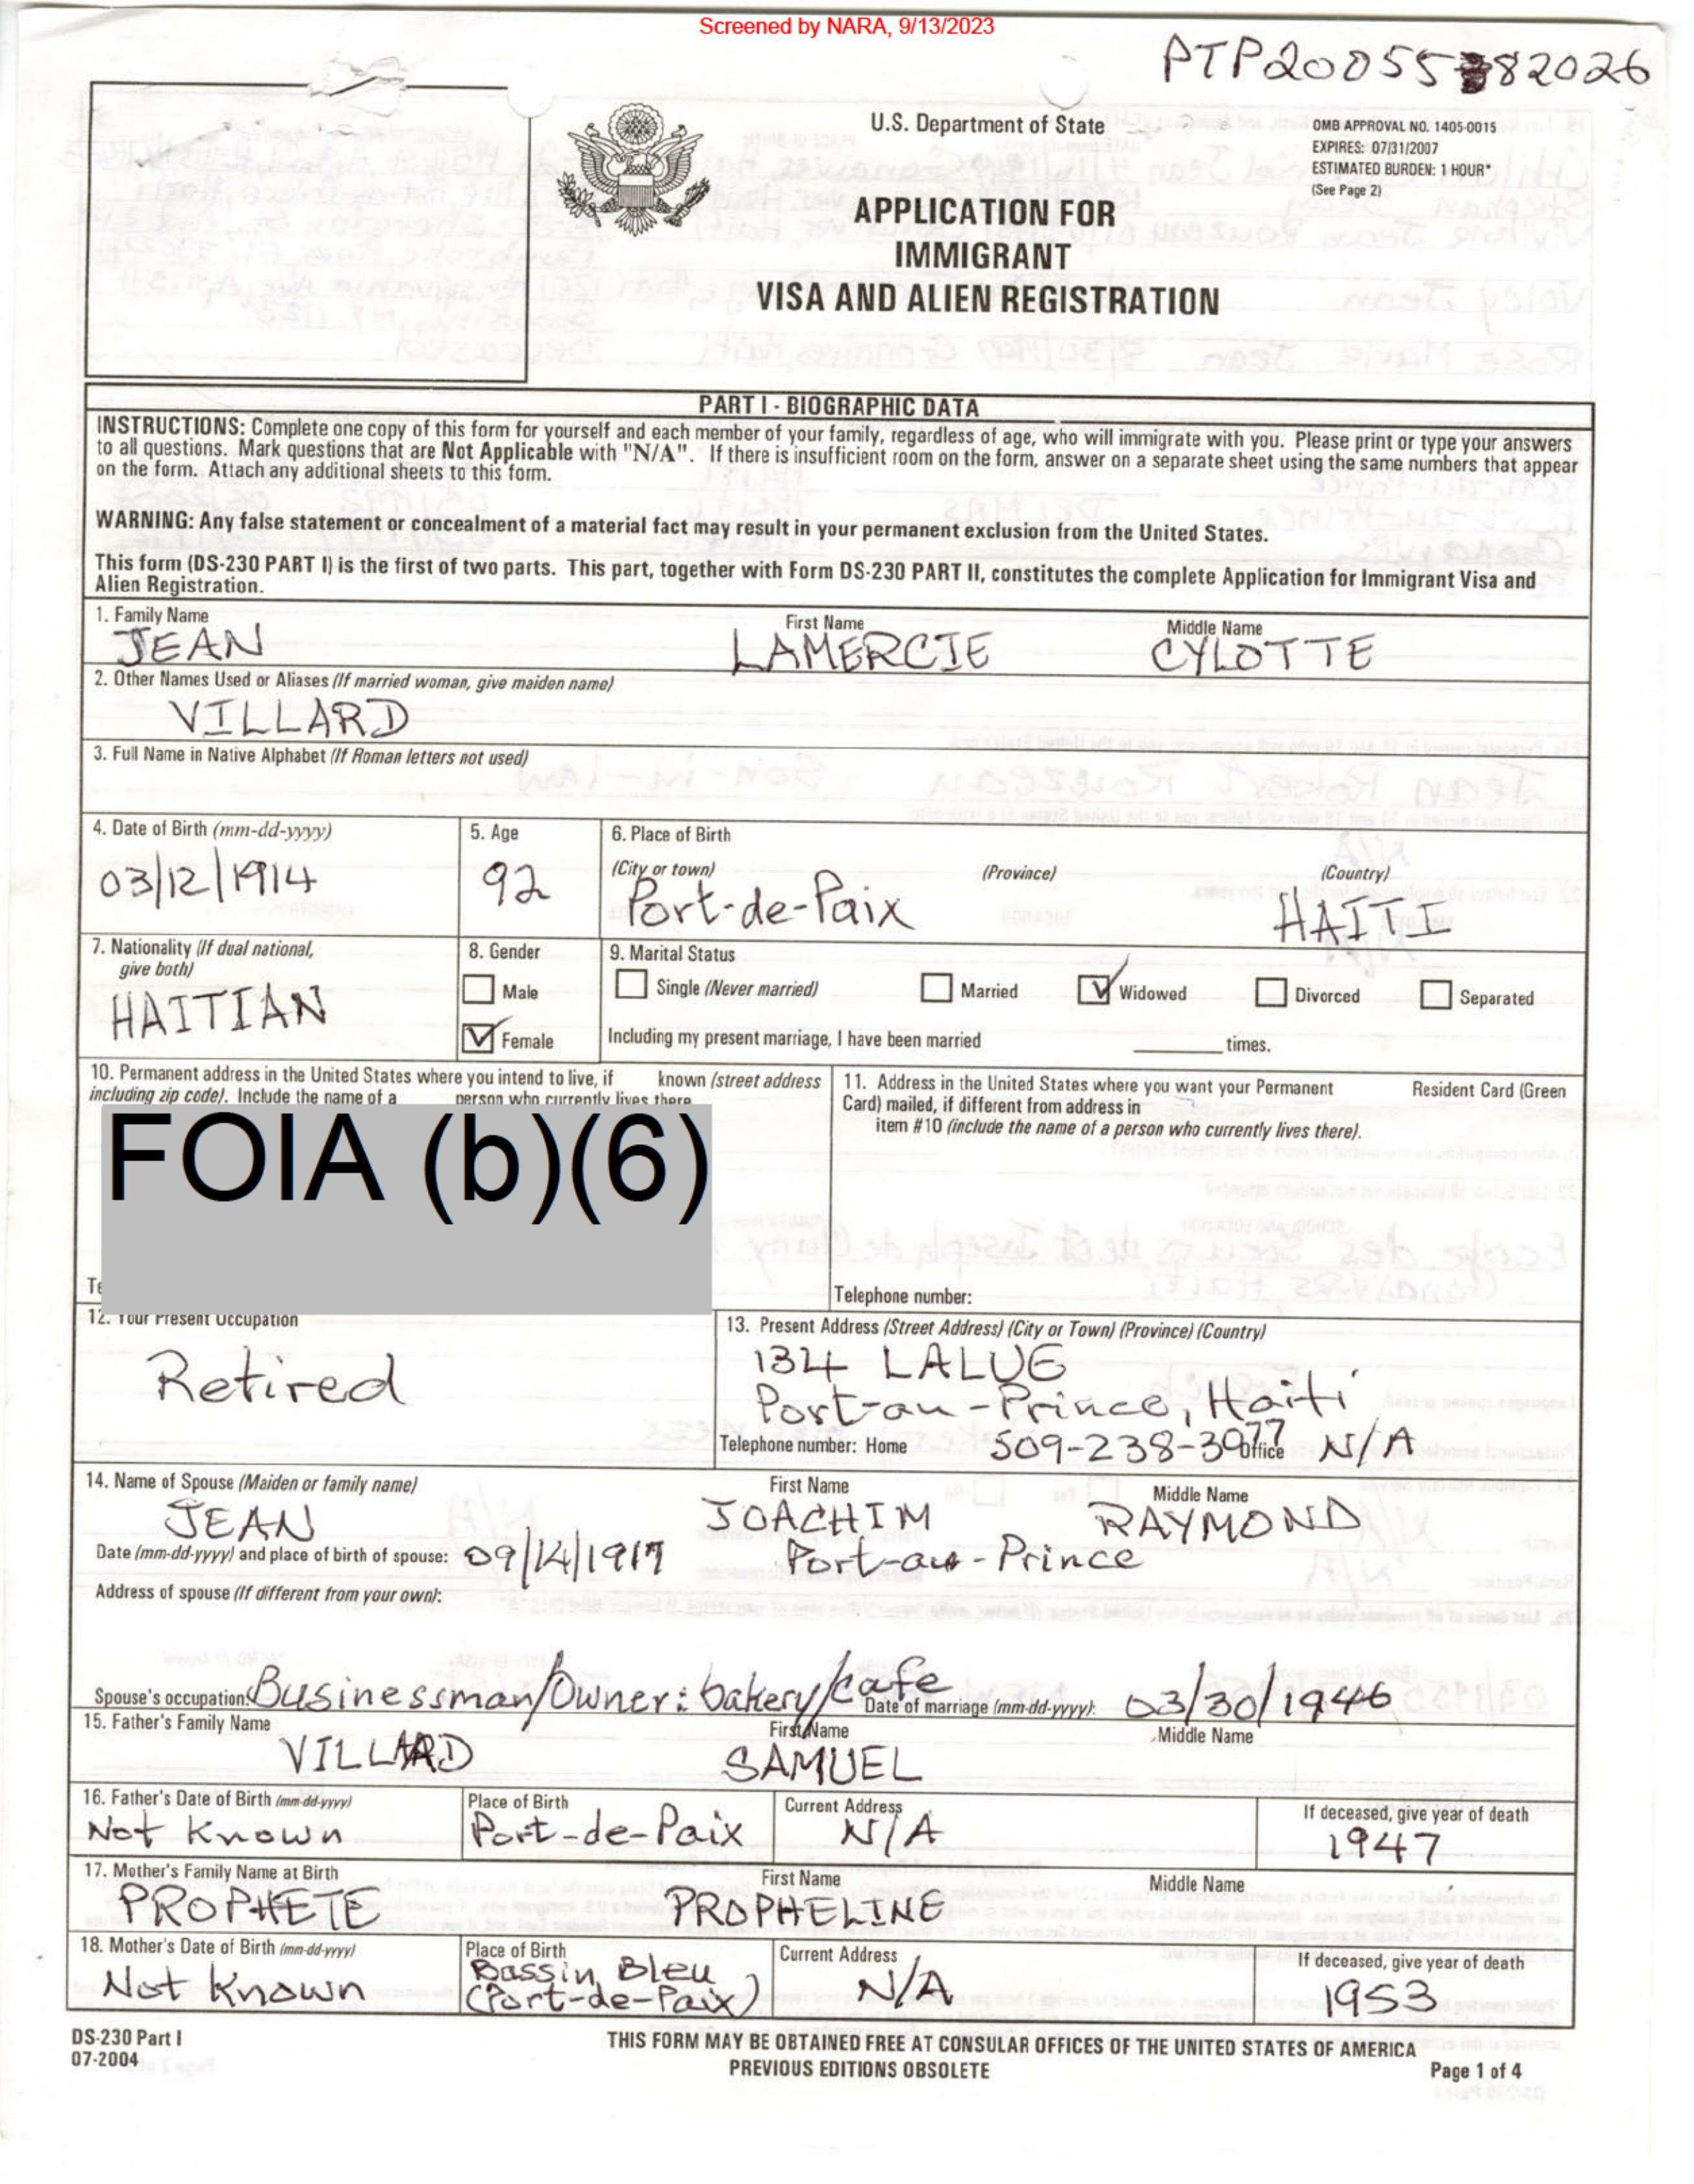 Screened by NARA, 9/13/2023
U.S. Department of State
OMB APPROVAL NO. 1405-0015
EXPIRES: 07/31/2007
ESTIMATED BURDEN: 1 HOUR*
(See Page 2)
APPLICATION FOR
IMMIGRANT
VISA AND ALIEN REGISTRATION
PART I - BIOGRAPHIC DATA
INSTRUCTIONS: Complete one copy of this form for yourself and each member of your family, regardless of age, who will immigrate with you. Please print or type your answers
to all questions. Mark questions that are Not Applicable with "N/A". If there is insufficient room on the form, answer on a separate sheet using the same numbers that appear
on the form. Attach any additional sheets to this form.
WARNING: Any false statement or concealment of a material fact may result in your permanent exclusion from the United States.
This form (DS-230 PART I) is the first of two parts. This part, together with Form DS-230 PART II, constitutes the complete Application for Immigrant Visa and
Alien Registration.
1. Family Name First Name Middle Name
JEAN LAMERCIE CYLOTTE
2. Other Names Used or Aliases (If married woman, give maiden name)
VILLARD
3. Full Name in Native Alphabet (If Roman letters not used)
4. Date of Birth (mm-dd-yyyy) 5. Age 6. Place of Birth
(City or town) (Province) (Country)
03/12/1914 92 Port-de-Paix HAITI
7. Nationality (If dual national,
give both)
HAITIAN
8. Gender
Male
Female
9. Marital Status
Single (Never married) Married Widowed Divorced Separated
Including my present marriage, I have been married ______ times.
10. Permanent address in the United States where you intend to live, if known (street address
including zip code). Include the name of a person who currently lives there
FOIA (b)(6)
11. Address in the United States where you want your Permanent Resident Card (Green
Card) mailed, if different from address in
item #10 (include the name of a person who currently lives there).
Telephone number:
12. Your Present Occupation
Retired
13. Present Address (Street Address) (City or Town) (Province) (Country)
134 LALUE
Port-au-Prince, Haiti
Telephone number: Home 509-238-3077 Office N/A
14. Name of Spouse (Maiden or family name) First Name Middle Name
JEAN JOACHIM RAYMOND
Date (mm-dd-yyyy) and place of birth of spouse: Port-au-Prince
Address of spouse (If different from your own):
Spouse's occupation: Businessman/Owner: bakery/cafe Date of marriage (mm-dd-yyyy): 03/30/1946
15. Father's Family Name First Name Middle Name
VILLARD SAMUEL
16. Father's Date of Birth (mm-dd-yyyy) Place of Birth Current Address If deceased, give year of death
Not Known Port-de-Paix N/A 1947
17. Mother's Family Name at Birth First Name Middle Name
PROPHETE PROPHELINE
18. Mother's Date of Birth (mm-dd-yyyy) Place of Birth Current Address If deceased, give year of death
Not Known Bassin Bleu N/A 1953
(Port-de-Paix)
DS-230 Part I
07-2004
THIS FORM MAY BE OBTAINED FREE AT CONSULAR OFFICES OF THE UNITED STATES OF AMERICA
PREVIOUS EDITIONS OBSOLETE
Page 1 of 4